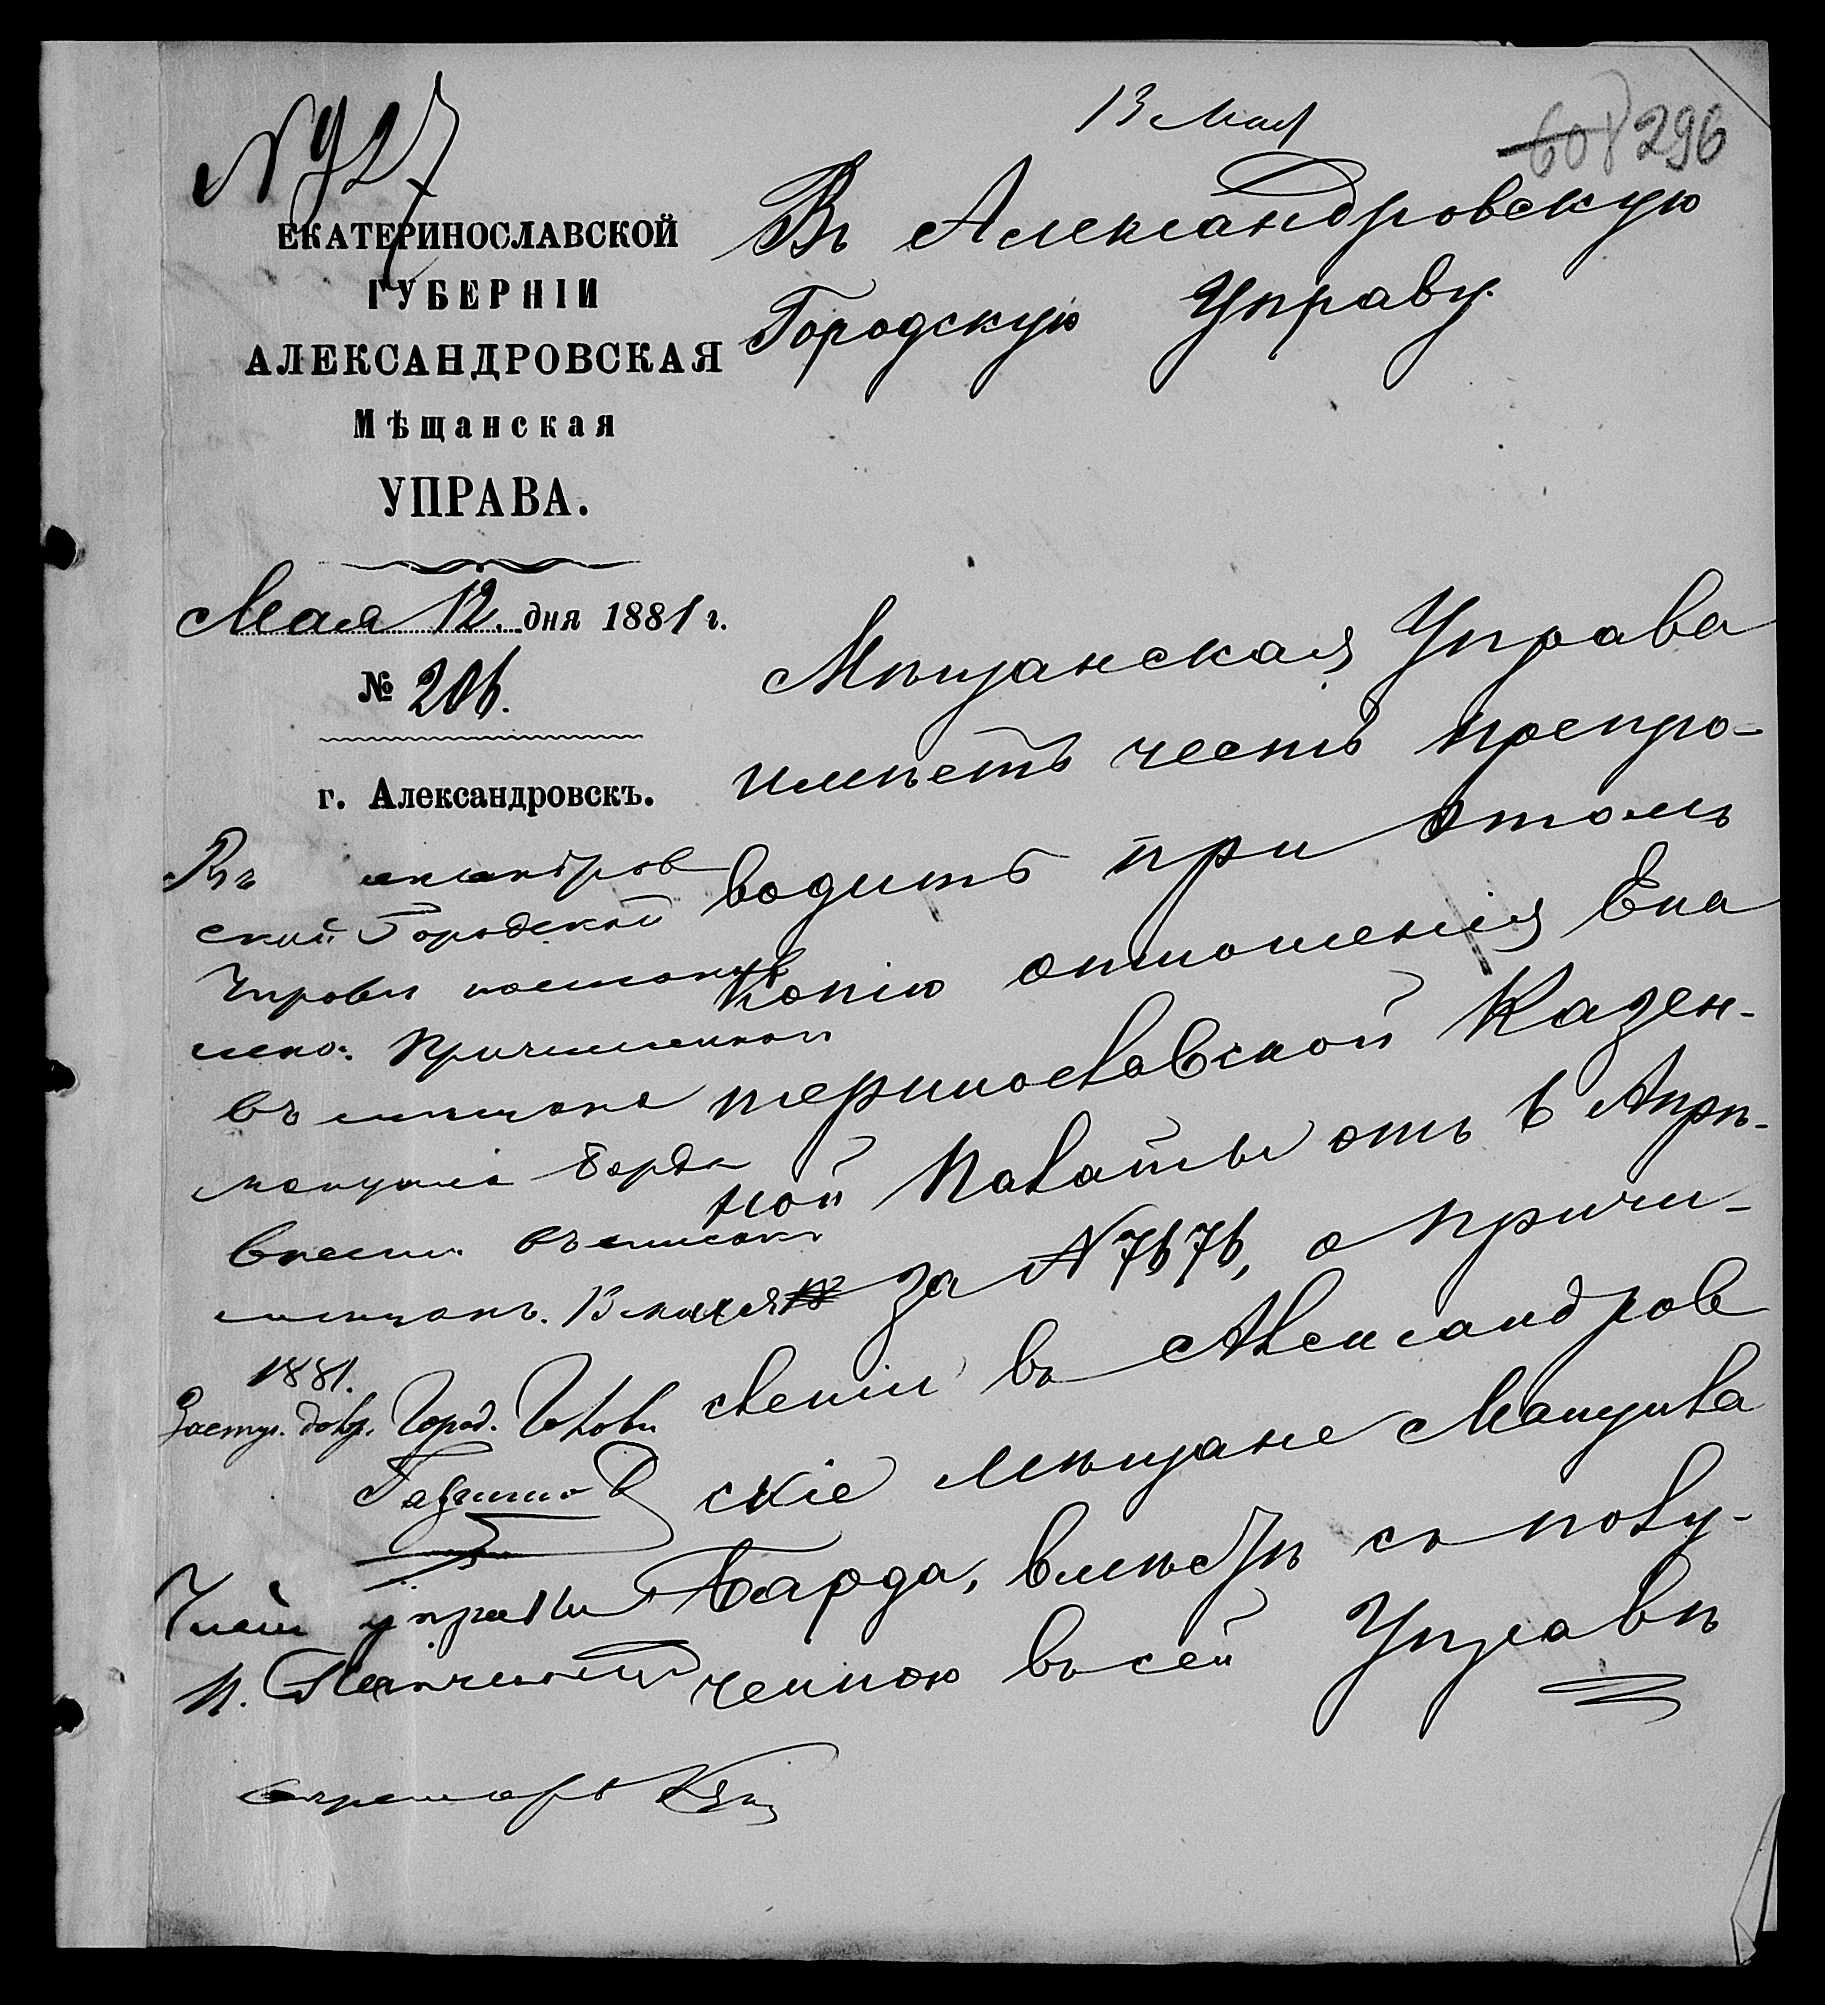 № 927
13 Мая
608 296
ЕКАТЕРИНОСЛАВСКОЙ
ГУБЕРНІИ
АЛЕКСАНДРОВСКАЯ
Мѣщанская
УПРАВА.
Мая 12. дня 1881 г.
№ 206.
г. Александровскъ.
Въ Александровскую
Городскую Управу
Мѣщанская Управа
имѣетъ честь препро-
водить при этомъ
копію отношенія Ека
теринославской Казен-
ной Палаты отъ 6 Апрѣ-
за № 7676, о причи-
сленіи въ Александров
скіе мѣщане
Барда, вмѣстѣ съ полу-
ченною въ сей Управѣ
Въ
ской Городской
Управы
въ мѣщане
Борда
внести въ списокъ
мѣщанъ. 13 мая
1881.
Заступ. Город. Головы
Членъ управы
Секретарь